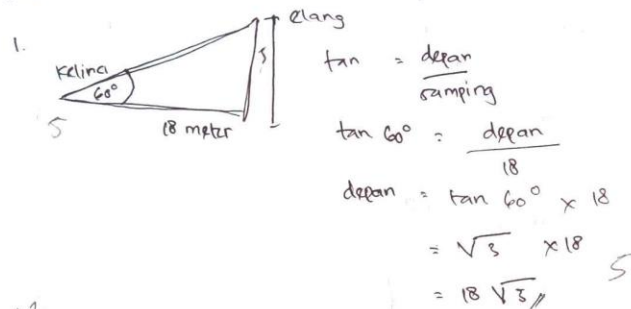 1.
elang
Kelinci
60°
5
18 meter
tan = depan / samping
tan 60° = depan / 18
depan = tan 60° × 18
= √3 × 18
= 18 √3 //
5